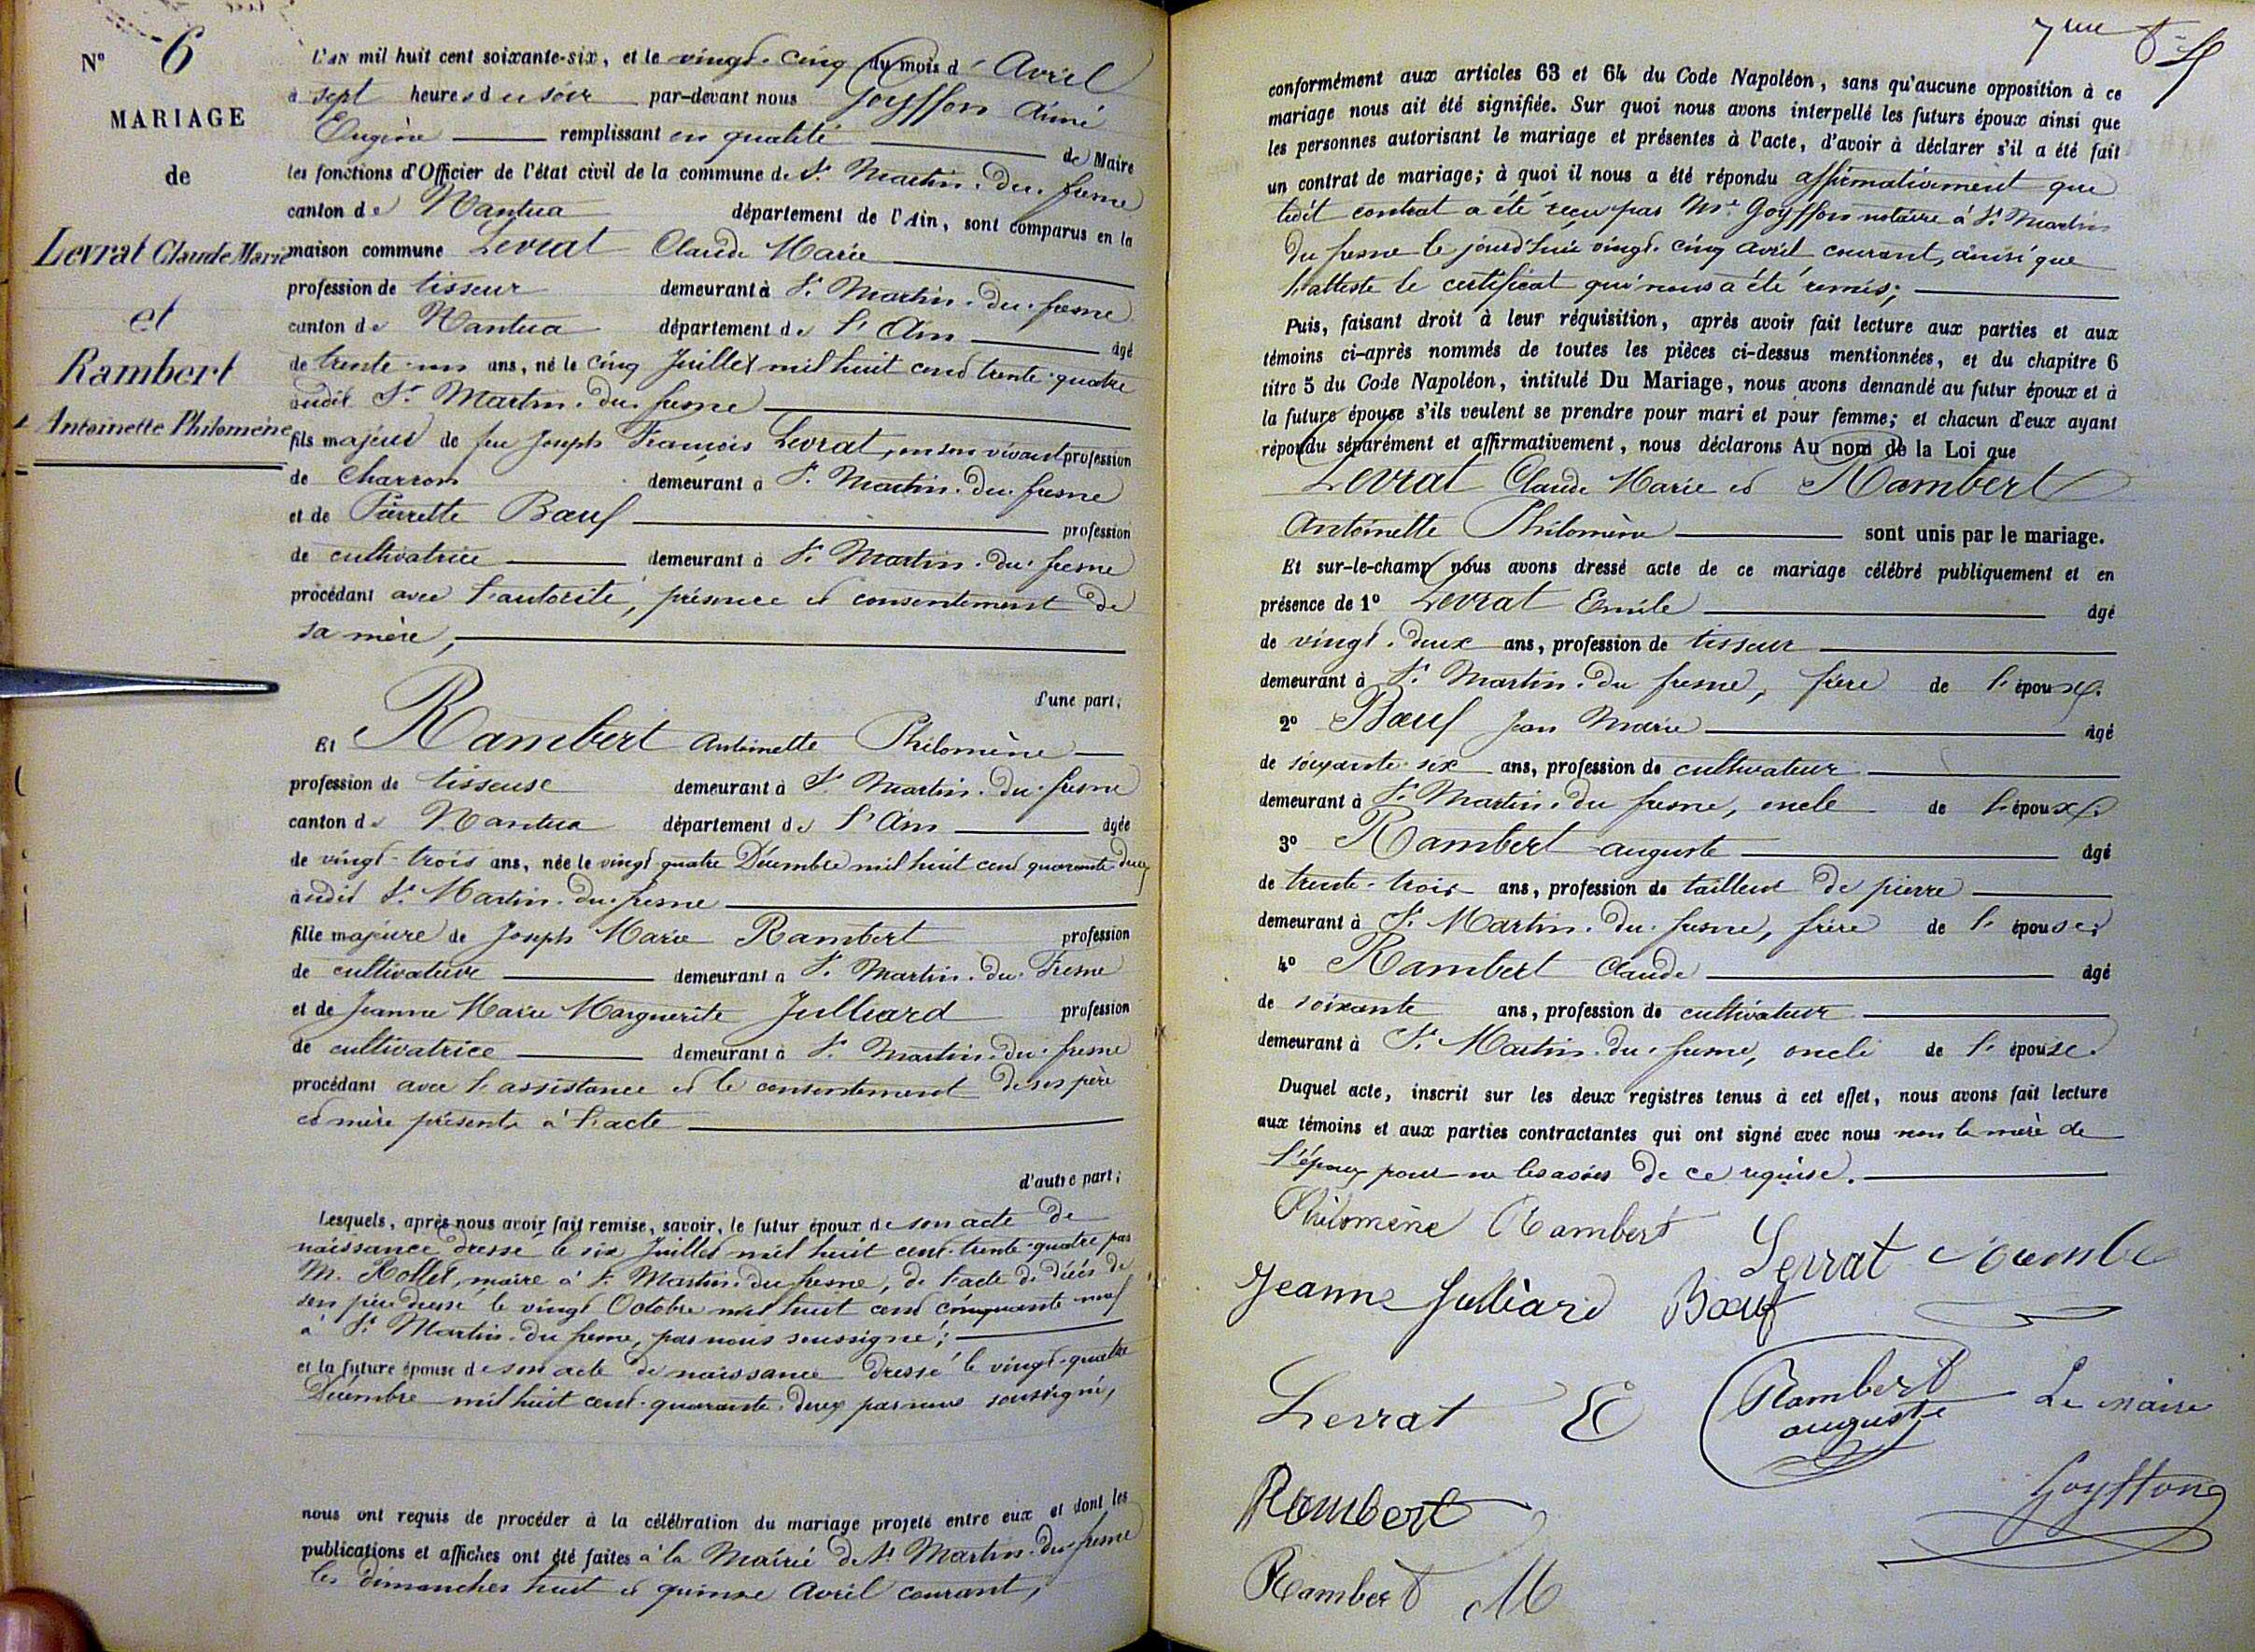 N° 6
MARIAGE
de
Levrat Claude Marie
et
Rambert
Antoinette Philomène
L'AN mil huit cent soixante-six, et le vingt-cinq du mois d'Avril
à sept heures du soir par-devant nous Goyffon Aimé
Eugène remplissant en qualité de Maire
les fonctions d'Officier de l'état civil de la commune de St Martin-du-fresne
canton de Nantua département de l'Ain, sont comparus en la
maison commune Levrat Claude Marie
profession de tisseur demeurant à St Martin-du-fresne
canton de Nantua département de l'Ain âgé
de trente-un ans, né le cinq Juillet mil huit cent trente-quatre
audit St Martin-du-fresne
fils majeur de feu Joseph François Levrat, en son vivant profession
de Charron demeurant à St Martin-du-fresne
et de Pierrette Bœuf profession
de cultivatrice demeurant à St Martin-du-fresne
procédant avec l'autorité, présence et consentement de
sa mère,
d'une part;
Et Rambert Antoinette Philomène
profession de tisseuse demeurant à St Martin-du-fresne
canton de Nantua département de l'Ain âgée
de vingt-trois ans, née le vingt quatre Décembre mil huit cent quarante-deux
audit St Martin-du-fresne
fille majeure de Joseph Marie Rambert profession
de cultivateur demeurant à St Martin-du-Fresne
et de Jeanne Marie Marguerite Julliard profession
de cultivatrice demeurant à St Martin-du-fresne
procédant avec l'assistance et le consentement de ses père
et mère présents à l'acte
d'autre part;
Lesquels, après nous avoir fait remise, savoir, le futur époux de son acte de
naissance dressé le six Juillet mil huit cent trente-quatre par
M. Rollet, maire à St Martin-du-fresne, de l'acte de décès de
son père dressé le vingt Octobre mil huit cent cinquante neuf
à St Martin-du-fresne, par nous soussigné;
et la future épouse de son acte de naissance dressé le vingt-quatre
Décembre mil huit cent-quarante-deux par nous soussigné,
nous ont requis de procéder à la célébration du mariage projeté entre eux et dont les
publications et affiches ont été faites à la Mairie de St Martin-du-fresne
les dimanches huit et quinze Avril courant,
7me
conformément aux articles 63 et 64 du Code Napoléon, sans qu'aucune opposition à ce
mariage nous ait été signifiée. Sur quoi nous avons interpellé les futurs époux ainsi que
les personnes autorisant le mariage et présentes à l'acte, d'avoir à déclarer s'il a été fait
un contrat de mariage; à quoi il nous a été répondu affirmativement que
ledit contrat a été reçu par Me Goyffon notaire à St Martin
du fresne le jourd'hui vingt-cinq avril courant, ainsi que
l'atteste le certificat qui nous a été remis;
Puis, faisant droit à leur réquisition, après avoir fait lecture aux parties et aux
témoins ci-après nommés de toutes les pièces ci-dessus mentionnées, et du chapitre 6
titre 5 du Code Napoléon, intitulé Du Mariage, nous avons demandé au futur époux et à
la future épouse s'ils veulent se prendre pour mari et pour femme; et chacun d'eux ayant
répondu séparément et affirmativement, nous déclarons Au nom de la Loi que
Levrat Claude Marie et Rambert
Antoinette Philomène sont unis par le mariage.
Et sur-le-champ nous avons dressé acte de ce mariage célébré publiquement et en
présence de 1° Levrat Emile âgé
de vingt-deux ans, profession de tisseur
demeurant à St Martin-du fresne, frère de l'époux.
2° Bœuf Jean Marie âgé
de soixante-six ans, profession de cultivateur
demeurant à St Martin-du fresne, oncle de l'époux.
3° Rambert auguste âgé
de trente-trois ans, profession de tailleur de pierre
demeurant à St Martin-du-fresne, frère de l'épouse;
4° Rambert Claude âgé
de soixante ans, profession de cultivateur
demeurant à St Martin-du-fresne, oncle de l'épouse.
Duquel acte, inscrit sur les deux registres tenus à cet effet, nous avons fait lecture
aux témoins et aux parties contractantes qui ont signé avec nous non la mère de
l'époux pour ne le savoir de ce requise.
Philomène Rambert
Levrat
Jeanne Julliard Bœuf
Levrat E Rambert auguste Le maire
Rambert Goyffon
Rambert M